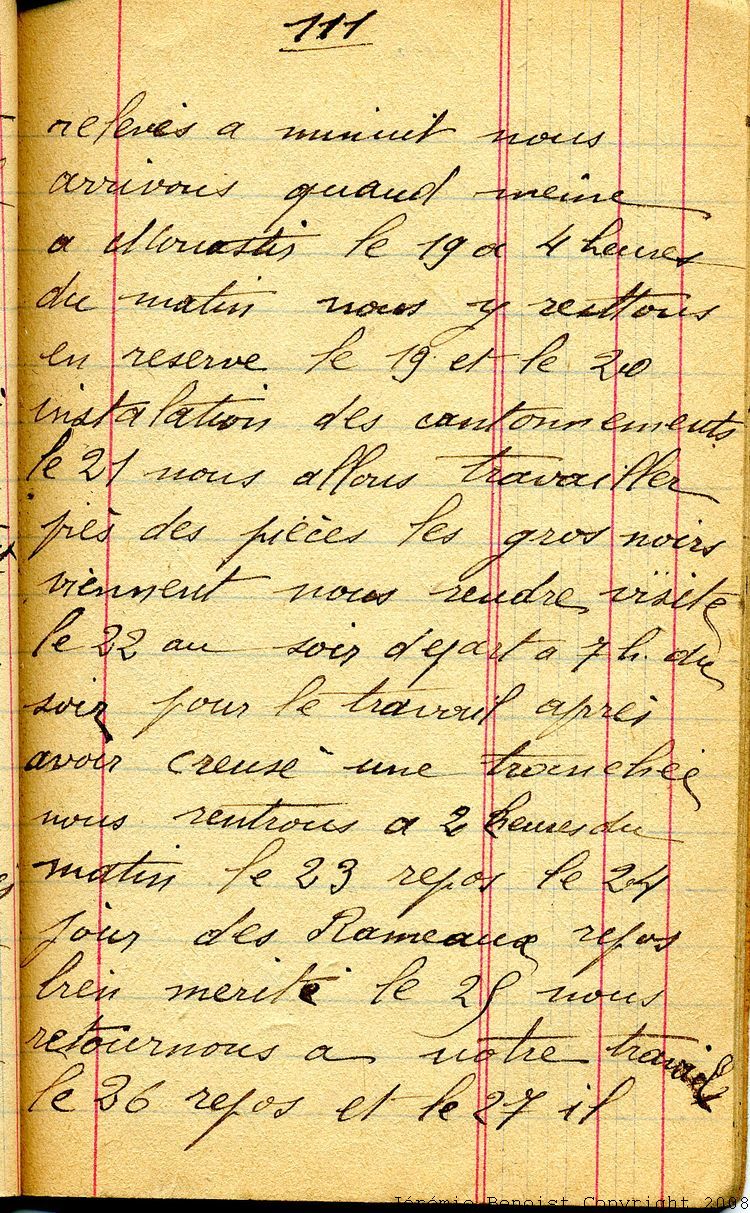 111
relevés a minuit nous
arrivons quand meme
a Monastir le 19 a 4 heures
du matin nous y resttons
en reserve le 19 et le 20
instalation des cantonnements
le 21 nous allons travailler
près des pièces les gros noirs
viennent nous rendre visite
le 22 au soir départ a 7 h. du
soir pour le travail après
avoir creusé une tranchée
nous rentrons a 2 heures du
matin le 23 repos le 24
jour des Rameaux repos
bien merité le 25 nous
retournons a notre travail
le 26 repos et le 27 il
Jérémie Benoist Copyright 2008